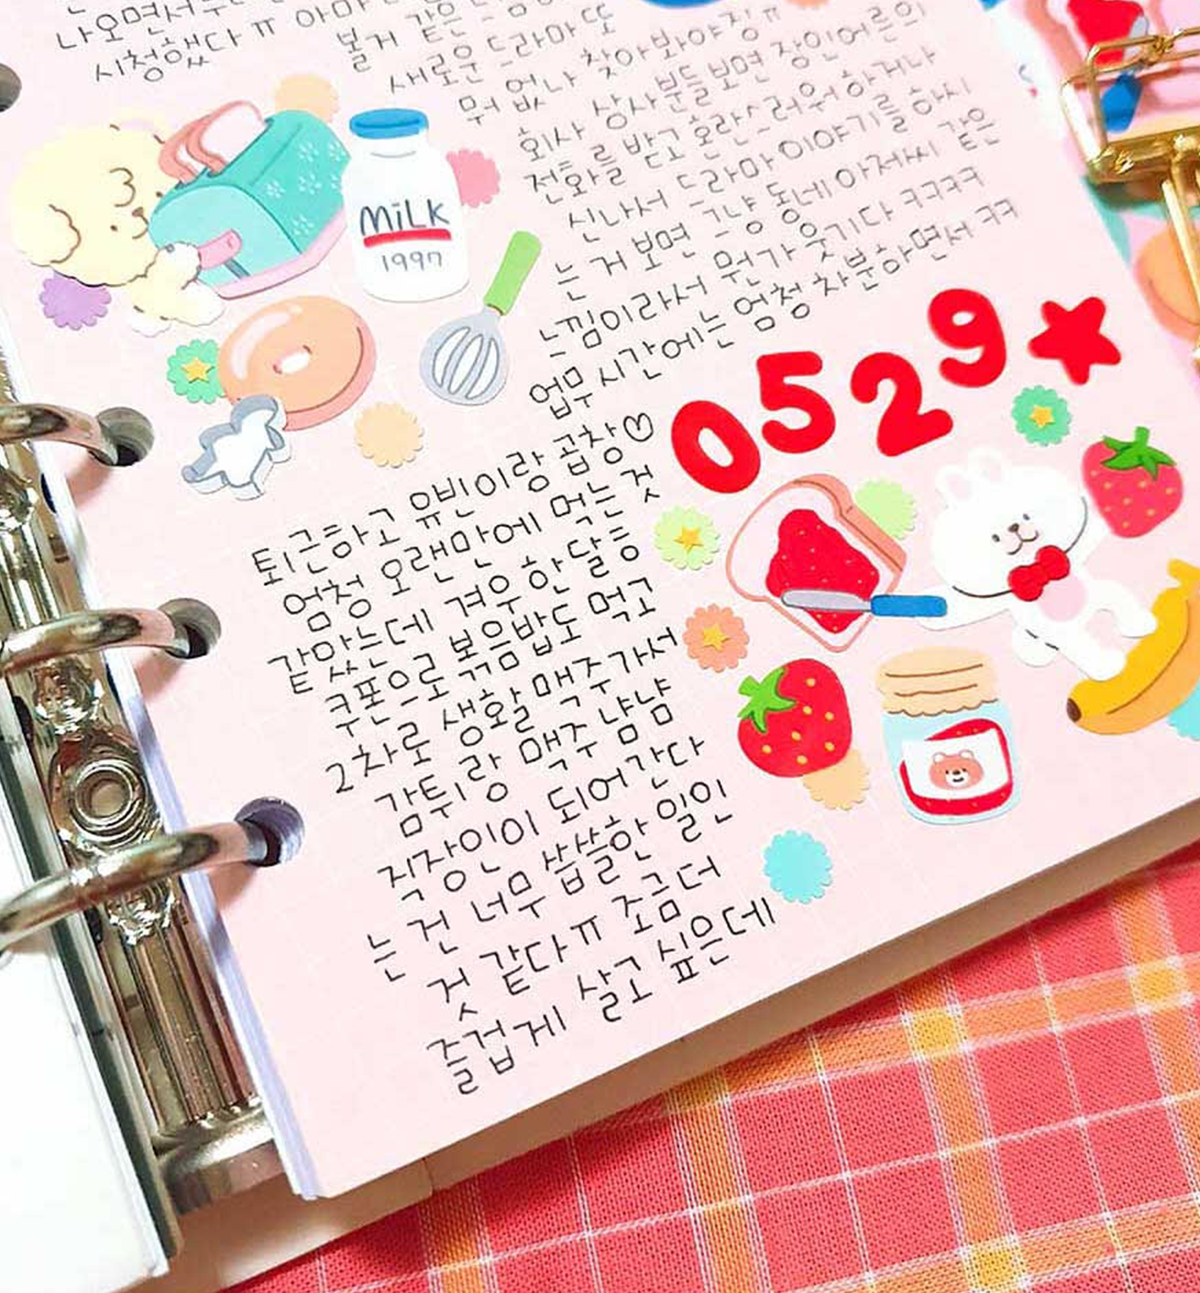 나오면서
시청했다 ㅠ 아마
볼거 같은
새로운 드라마 또
뭐 없나 찾아봐야징 ㅠ
회사 상사분들 보면 장인어른의
전화를 받고 혼란스러워하거나
신나서 드라마 이야기를 하시
는 거 보면 그냥 동네 아저씨 같은
느낌이라서 뭔가 웃기다 ㅋㅋㅋㅋ
업무 시간에는 엄청 차분하면서 ㅋㅋ
MiLK
1997
0529
퇴근하고 유빈이랑 곱창♡
엄청 오랜만에 먹는 것
같았는데 겨우 한 달 등
쿠폰으로 볶음밥도 먹고
2차로 생활맥주가서
감튀랑 맥주 냠냠
직장인이 되어간다
는 건 너무 씁쓸한 일인
것 같다ㅠ 조금 더
즐겁게 살고 싶은데